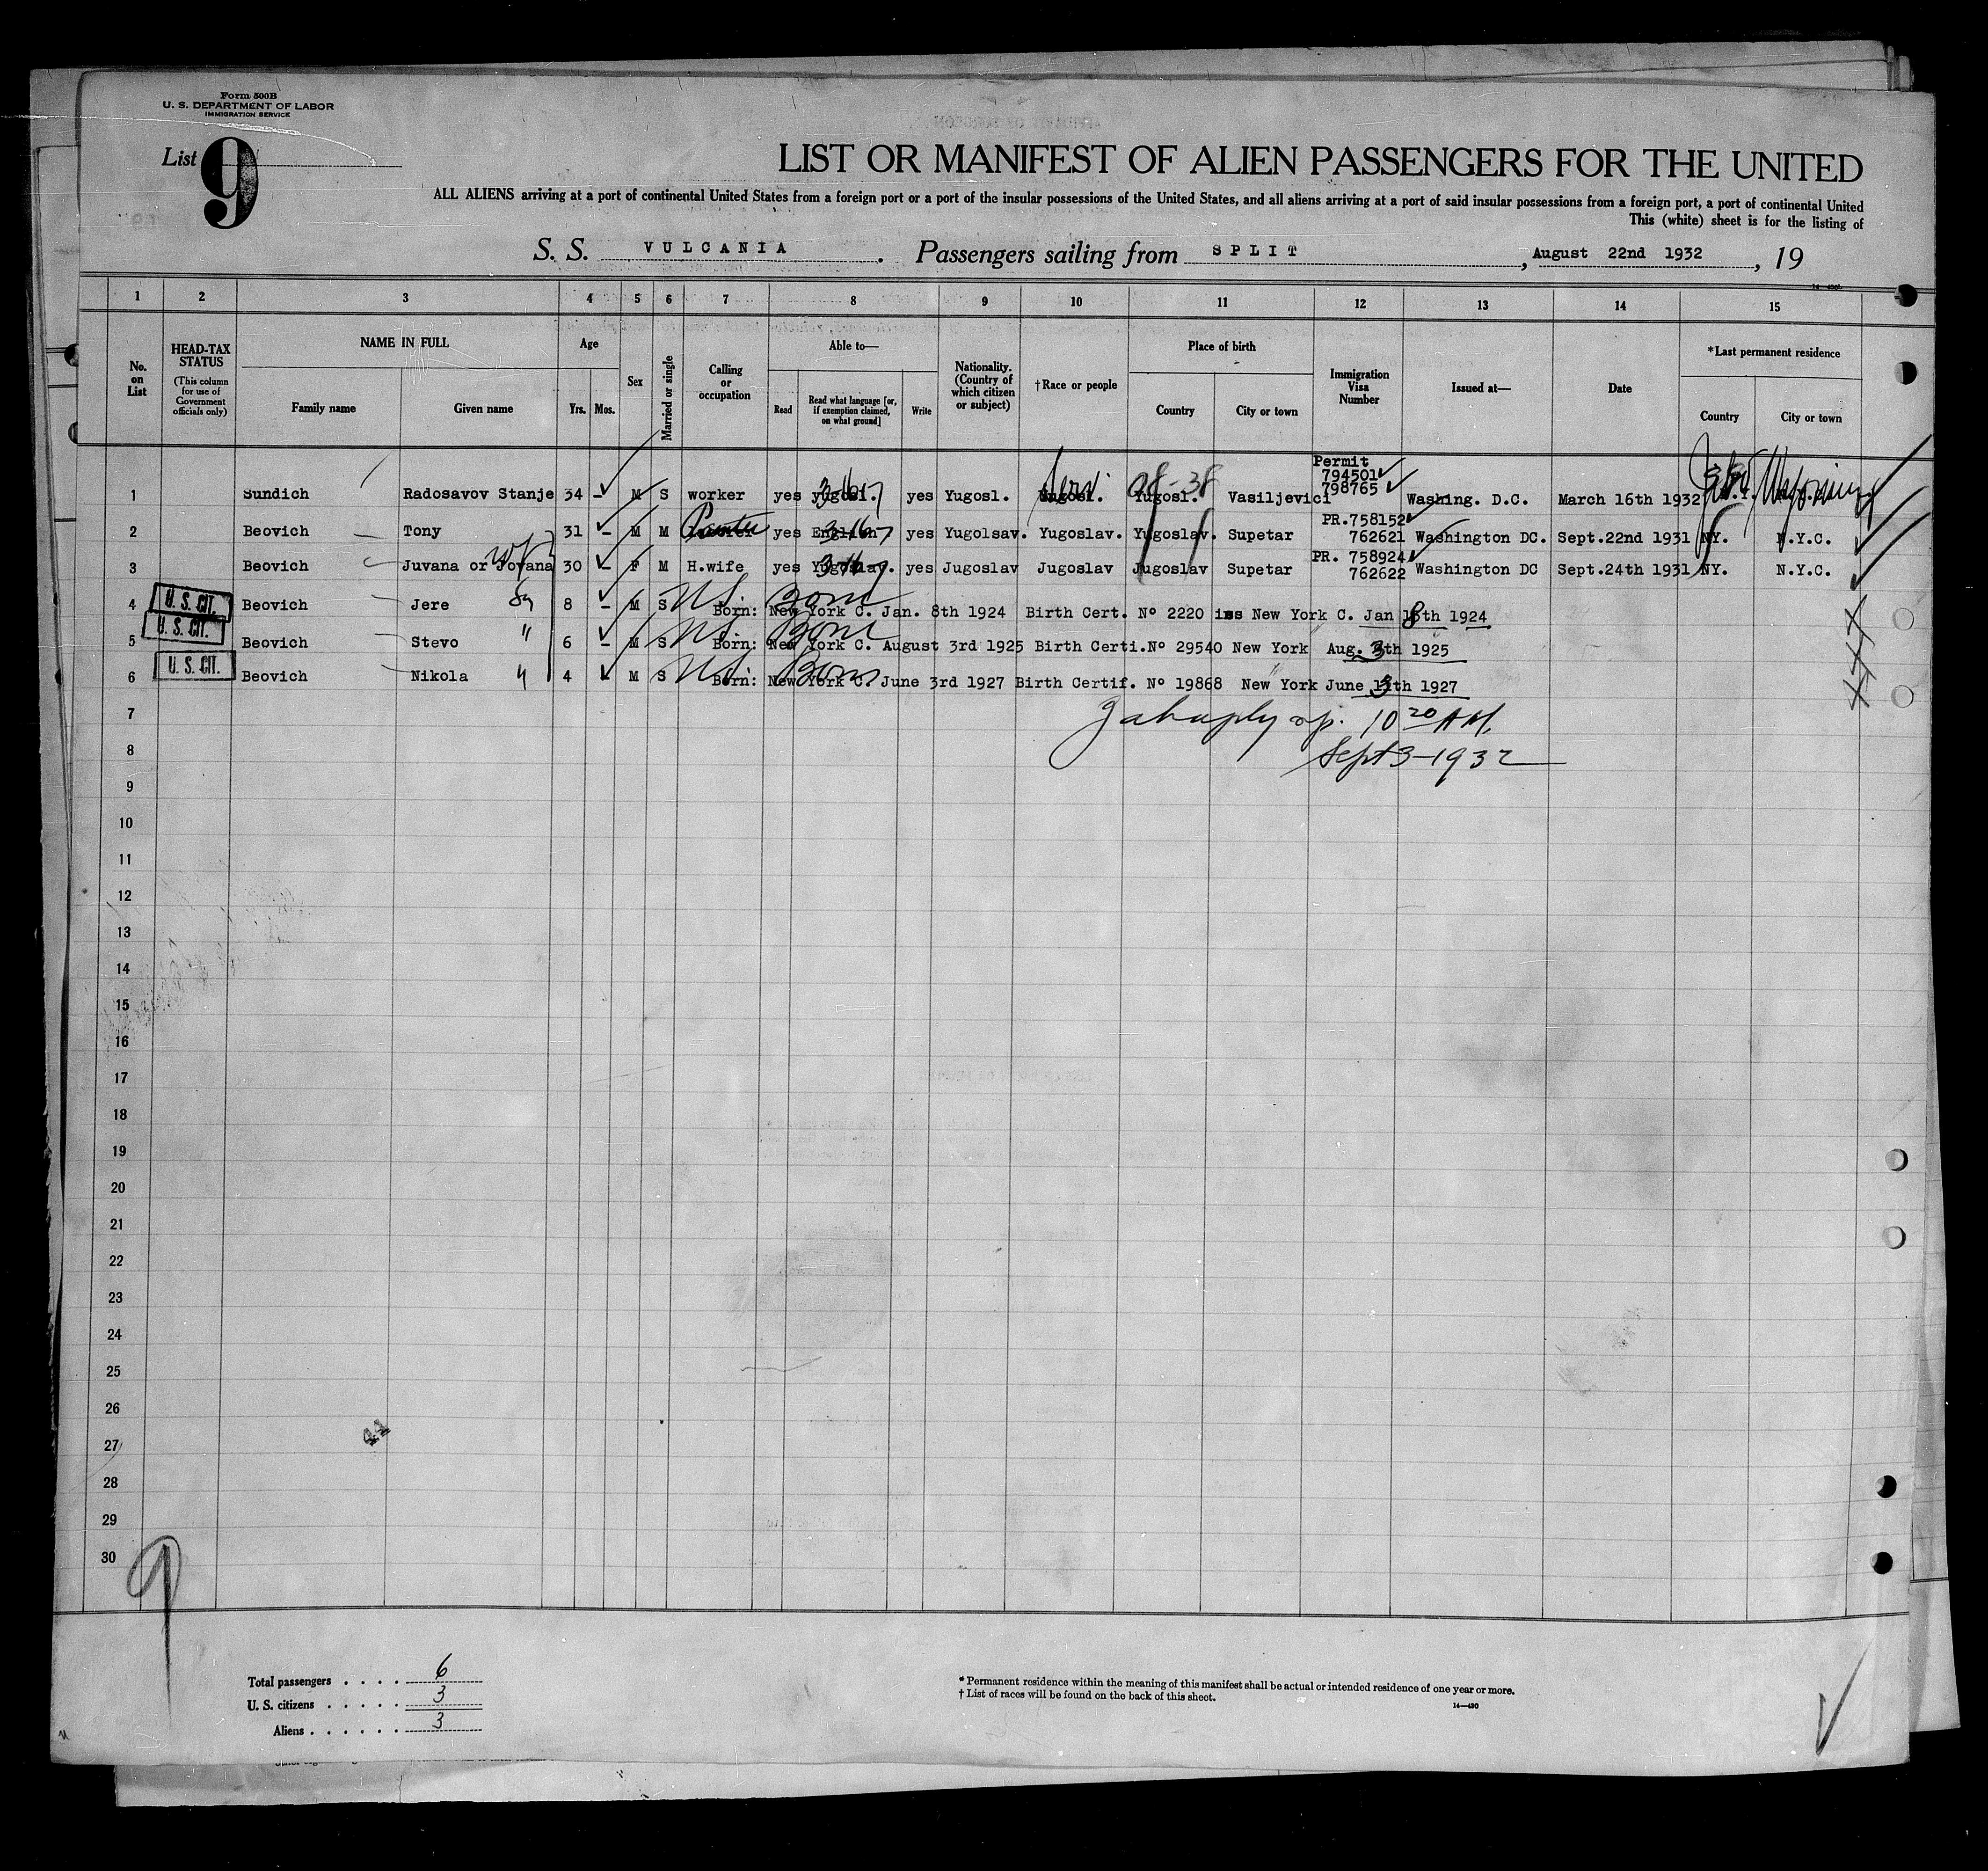 Form 500B
U. S. DEPARTMENT OF LABOR
IMMIGRATION SERVICE
List 9
LIST OR MANIFEST OF ALIEN PASSENGERS FOR THE UNITED
ALL ALIENS arriving at a port of continental United States from a foreign port or a port of the insular possessions of the United States, and all aliens arriving at a port of said insular possessions from a foreign port, a port of continental United
This (white) sheet is for the listing of
S. S. VULCANIA . Passengers sailing from SPLIT , August 22nd 1932 , 19
1 2 3 4 5 6 7 8 9 10 11 12 13 14 15
No. on List
HEAD-TAX STATUS
(This column for use of Government officials only)
NAME IN FULL
Family name Given name
Age
Yrs. Mos.
Sex
Married or single
Calling or occupation
Able to—
Read
Read what language [or, if exemption claimed, on what ground]
Write
Nationality. (Country of which citizen or subject)
†Race or people
Place of birth
Country City or town
Immigration Visa Number
Issued at—
Date
*Last permanent residence
Country City or town
Permit
794501
1 Sundich Radosavov Stanje 34 – M S worker yes yugosl. yes Yugosl. Yugosl. Yugosl. Vasiljevici 798765 Washing. D.C. March 16th 1932 Wyoming
28-38
PR.758152
2 Beovich Tony 31 – M M Painter yes English yes Yugolsav. Yugoslav. Yugoslav. Supetar 762621 Washington DC. Sept.22nd 1931 NY. N.Y.C.
PR. 758924
3 Beovich Juvana or Jovana wf 30 – F M H.wife yes Yugoslav. yes Jugoslav Jugoslav Jugoslav Supetar 762622 Washington DC Sept.24th 1931 NY. N.Y.C.
4 U. S. CIT. Beovich Jere Sn 8 – M S US Born
Born: New York C. Jan. 8th 1924 Birth Cert. No 2220 New York C. Jan 8th 1924
5 U. S. CIT. Beovich Stevo " 6 – M S US Born
Born: New York C. August 3rd 1925 Birth Certi.No 29540 New York Aug. 3th 1925
6 U. S. CIT. Beovich Nikola " 4 – M S US Born
Born: New York C. June 3rd 1927 Birth Certif. No 19868 New York June 3th 1927
7
10 20 AM.
8
Sept 3-1932
9
10
11
12
13
14
15
16
17
18
19
20
21
22
23
24
25
26
27
28
29
30
9
Total passengers . . . . 6
U. S. citizens . . . . . 3
Aliens . . . . . . 3
* Permanent residence within the meaning of this manifest shall be actual or intended residence of one year or more.
† List of races will be found on the back of this sheet.
14—430